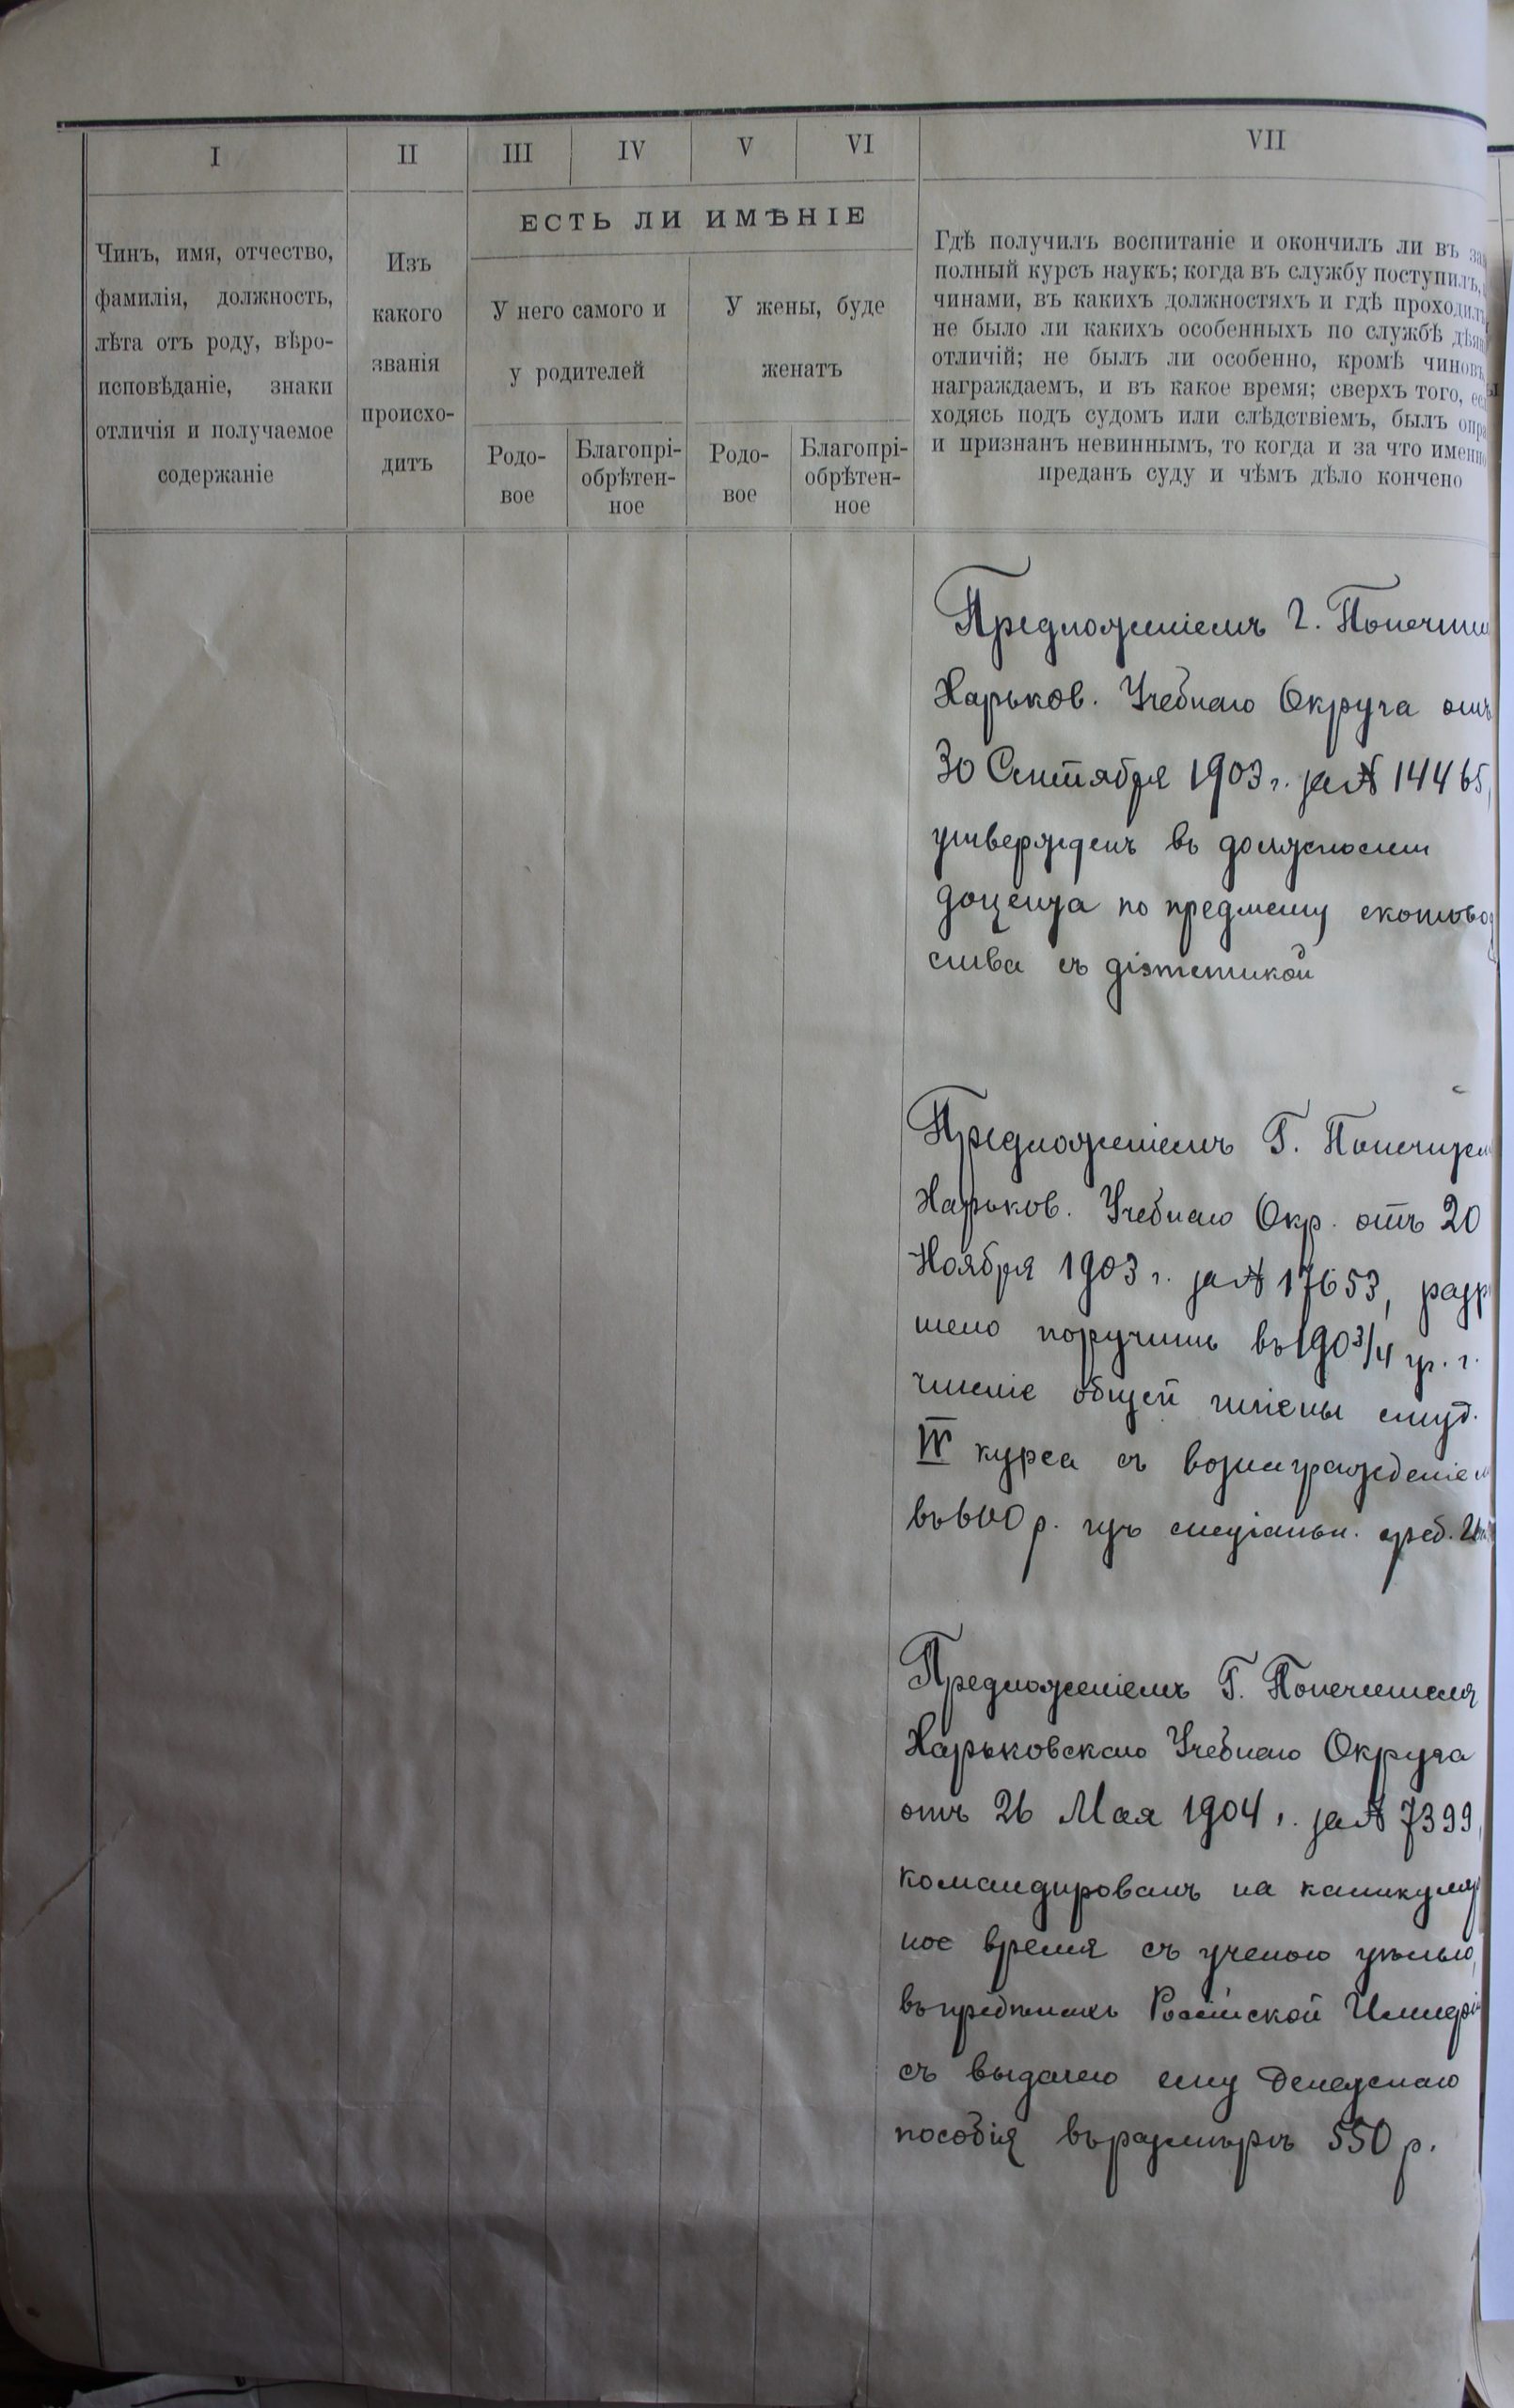 I
II
III
IV
V
VI
VII
ЕСТЬ ЛИ ИМѢНІЕ
Чинъ, имя, отчество,
фамилія, должность,
лѣта отъ роду, вѣро-
исповѣданіе, знаки
отличія и получаемое
содержаніе
Изъ
какого
званія
происхо-
дитъ
У него самого и
у родителей
У жены, буде
женатъ
Родо-
вое
Благопрі-
обрѣтен-
ное
Родо-
вое
Благопрі-
обрѣтен-
ное
Гдѣ получилъ воспитаніе и окончилъ ли въ за
полный курсъ наукъ; когда въ службу поступилъ,
чинами, въ какихъ должностяхъ и гдѣ проходилъ
не было ли какихъ особенныхъ по службѣ дѣян
отличій; не былъ ли особенно, кромѣ чиновъ,
награждаемъ, и въ какое время; сверхъ того, ес
ходясь подъ судомъ или слѣдствіемъ, былъ опра
и признанъ невиннымъ, то когда и за что именно
преданъ суду и чѣмъ дѣло кончено
Предложеніемъ Г. Попечит
Харьков. Учебнаго Округа отъ
30 Сентября 1903 г. за № 14465,
утвержденъ въ должности
доцента по предмету скотовод
ства съ діэтетикой
Предложеніемъ Г. Попечител
Харьков. Учебнаго Окр. отъ 20
Ноября 1903 г. за № 17653, разр
шено поручить въ 1903/4 уч. г.
чтеніе общей гигіены студ.
IV курса съ вознагражденіем
въ 600 р. изъ спеціальн. сред.
Предложеніемъ Г. Попечителя
Харьковскаго Учебнаго Округа
отъ 26 Мая 1904 г. за № 7399,
командированъ на каникуляр
ное время съ ученою цѣлью,
въ предѣлахъ Россійской Имперіи
съ выдачею ему денежнаго
пособія въ размѣрѣ 550 р.